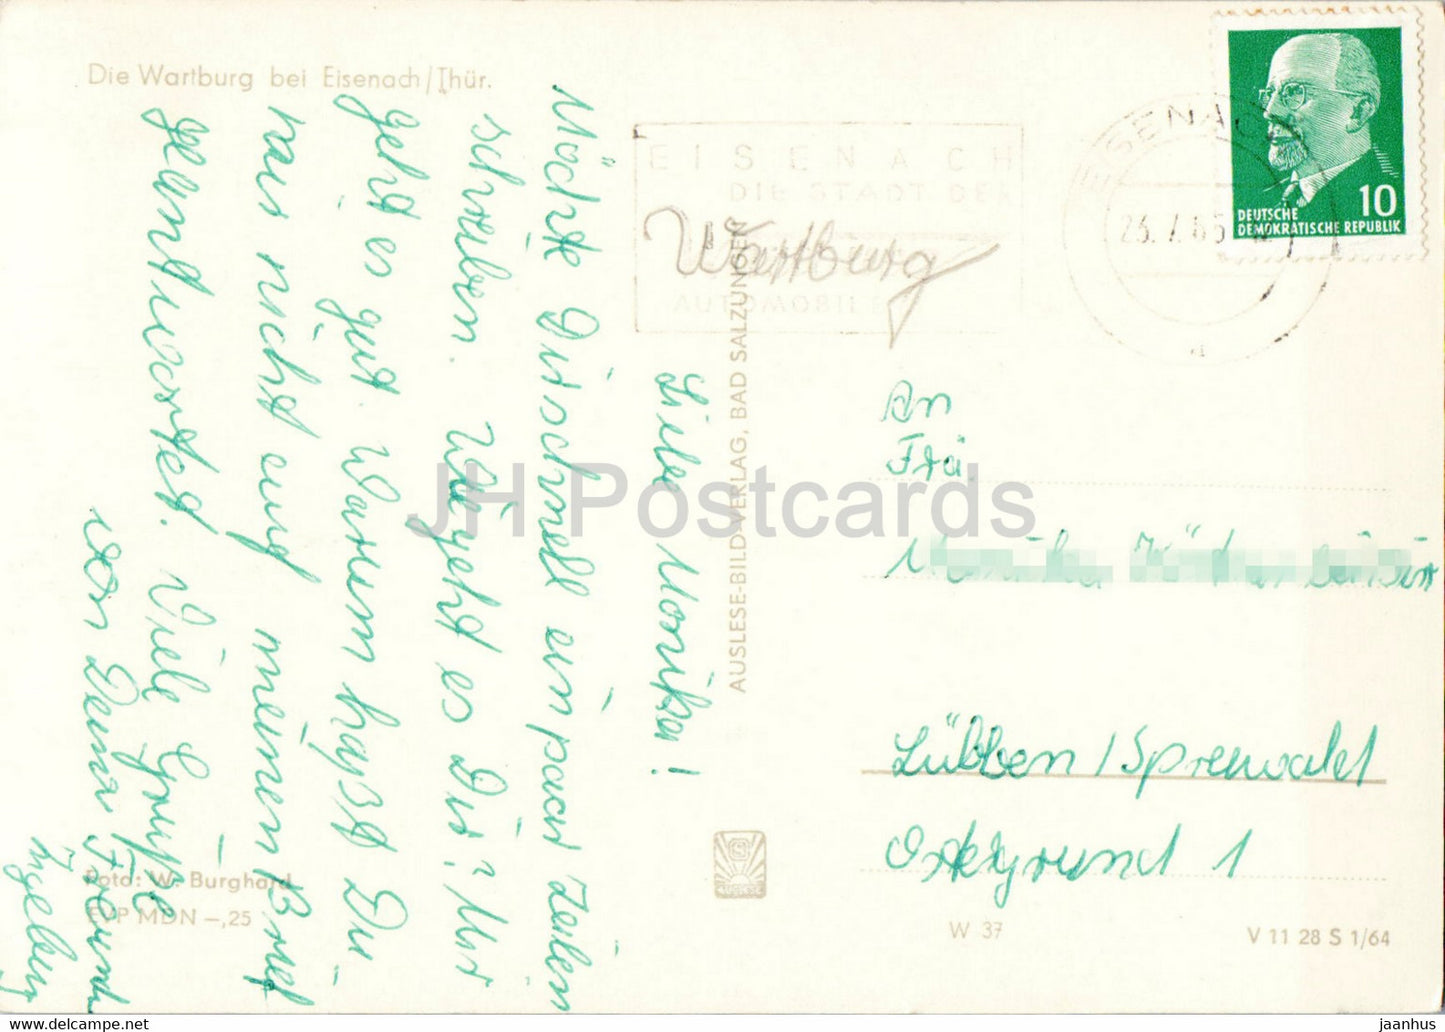 Die Wartburg bei Eisenach/Thür.
Liebe Monika!
Möchte Dir schnell ein paar Zeilen
schreiben. Wie geht es Dir? Mir
geht es gut. Warum hast Du
mir nicht auf meinen Brief
geantwortet. Viele Grüße
von Deiner Freundin
Foto: W. Burghard
EVP MDN -,25
AUSLESE-BILD-VERLAG, BAD SALZUNGEN
EISENACH
DIE STADT DER
Wartburg
AUTOMOBILE
EISENACH
23.7.65
10
DEUTSCHE
DEMOKRATISCHE REPUBLIK
An
Frä.
Lübben/Spreewald
Ostergrund 1
AUSLESE
W 37
V 11 28 S 1/64
JH Postcards
hip-postcard.com jaanhus